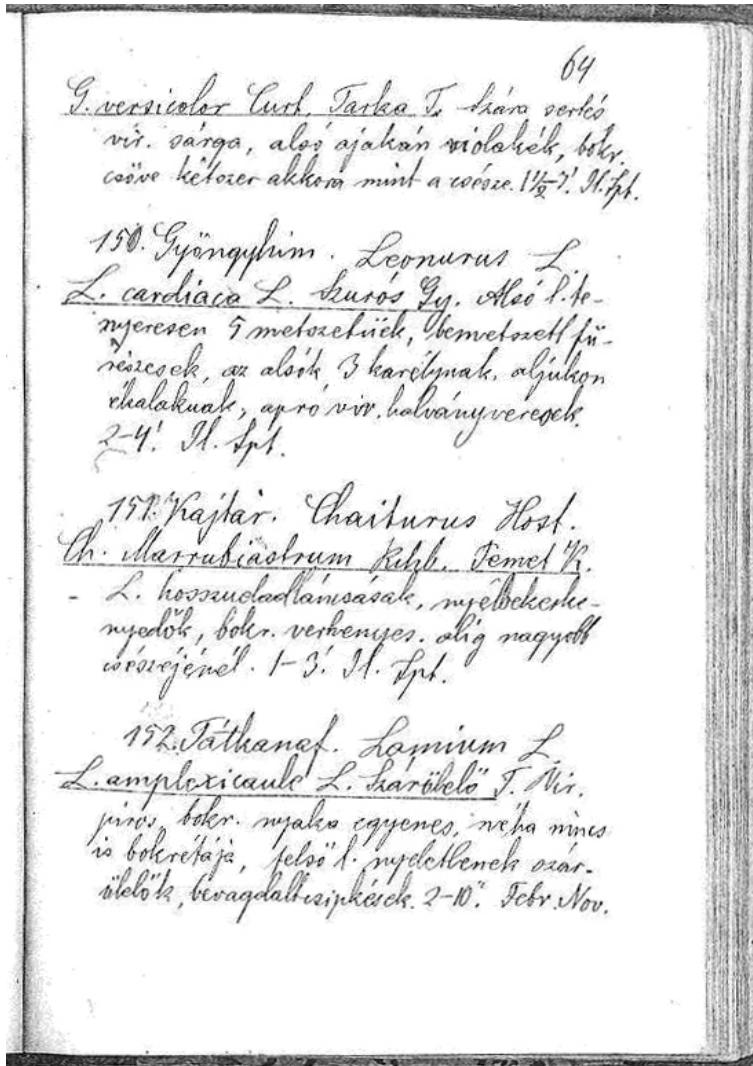 64
G. versicolor Curt. Tarka T. Szára sertés
vir. sárga, alsó ajakán violakék, bokr.
csöve kétszer akkora mint a csésze. 1½-3! Jl. Spt.
150. Gyöngyhim. Leonurus L.
L. cardiaca L. Szurós Gy. Alsó l. te-
nyeresen 5 metszetüek, bemetszett fü-
részesek, az alsók 3 karélynak, aljukon
ékalakuak, apró vir. halványveresek.
2-4! Jl. Spt.
151. Kajtár. Chaiturus Host.
Ch. Marrubiastrum Rchb. Temet K.
L. hosszudadlánsásak, nyélbekeske-
nyedők, bokr. verhenyes. alig nagyobb
csészéjénél. 1-3! Jl. Spt.
152. Tátkanaf. Lamium L.
L. amplexicaule L. Szárölelő T. Vir.
piros, bokr. nyaka egyenes, néha nincs
is bokrétája, felső l. nyeletlenek szár-
ölelők, bevagdaltcsipkések. 2-10". Febr. Nov.